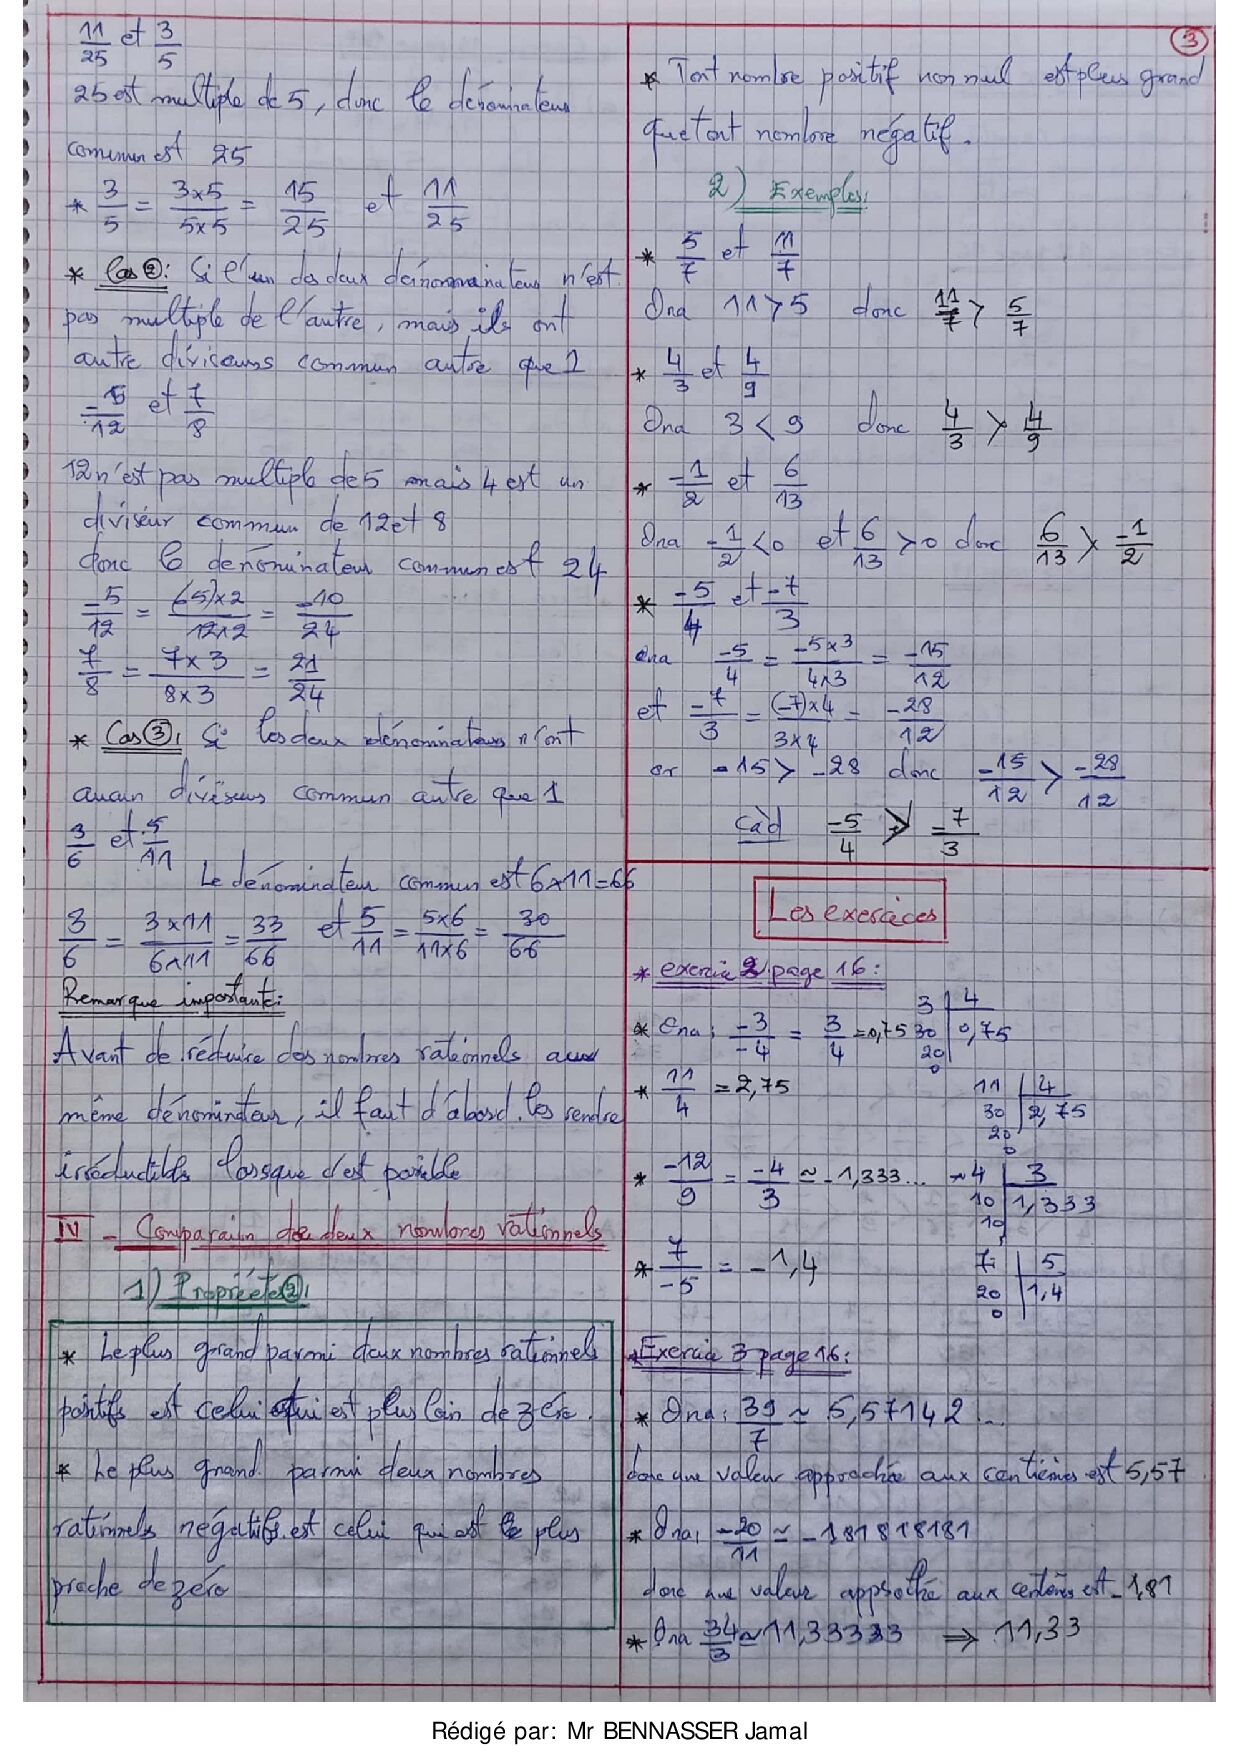 11/25 et 3/5
25 est multiple de 5, donc le dénominateur
commun est 25
* 3/5 = 3x5/5x5 = 15/25 et 11/25
* Cas ②: Si l'un des deux dénominateurs n'est
pas multiple de l'autre, mais ils ont
autre diviseurs commun autre que 1
-5/12 et 7/8
12 n'est pas multiple de 5 mais 4 est un
diviseur commun de 12 et 8
donc le dénominateur commun est 24
-5/12 = (-5)x2/12x2 = -10/24
7/8 = 7x3/8x3 = 21/24
* Cas ③: Si les deux dénominateurs n'ont
aucun diviseur commun autre que 1
3/6 et 5/11
Le dénominateur commun est 6x11=66
3/6 = 3x11/6x11 = 33/66 et 5/11 = 5x6/11x6 = 30/66
Remarque importante:
Avant de réduire des nombres rationnels aux
même dénominateur, il faut d'abord les rendre
irréductibles lorsque c'est possible
IV - Comparaison de deux nombres rationnels
1) Propriétés②:
* Le plus grand parmi deux nombres rationnels
positifs est celui qui est plus loin de zéro.
* Le plus grand parmi deux nombres
rationnels négatifs est celui qui est le plus
proche de zéro
③
* Tout nombre positif non nul est plus grand
que tout nombre négatif.
2) Exemples:
* 5/7 et 11/7
Ona 11 > 5 donc 11/7 > 5/7
* 4/3 et 4/9
Ona 3 < 9 donc 4/3 > 4/9
* -1/2 et 6/13
Ona -1/2 < 0 et 6/13 > 0 donc 6/13 > -1/2
* -5/4 et -7/3
Ona -5/4 = -5x3/4x3 = -15/12
et -7/3 = (-7)x4/3x4 = -28/12
or -15 > -28 donc -15/12 > -28/12
càd -5/4 > -7/3
Les exercices
* exercice 2 page 16:
* Ona: -3/-4 = 3/4 = 0,75
3 | 4
30 | 0,75
20
0
* 11/4 = 2,75
11 | 4
30 | 2,75
20
0
* -12/9 = -4/3 ≃ -1,333...
4 | 3
10 | 1,333
10
* 7/-5 = -1,4
7 | 5
20 | 1,4
0
* Exercice 3 page 16:
* Ona: 39/7 ≃ 5,57142...
donc une valeur approchée aux centièmes est 5,57
* Ona: -20/11 ≃ -181818181
donc une valeur approchée aux centièmes est -1,81
* Ona 34/3 ≃ 11,33333 ⇒ 11,33
Rédigé par: Mr BENNASSER Jamal